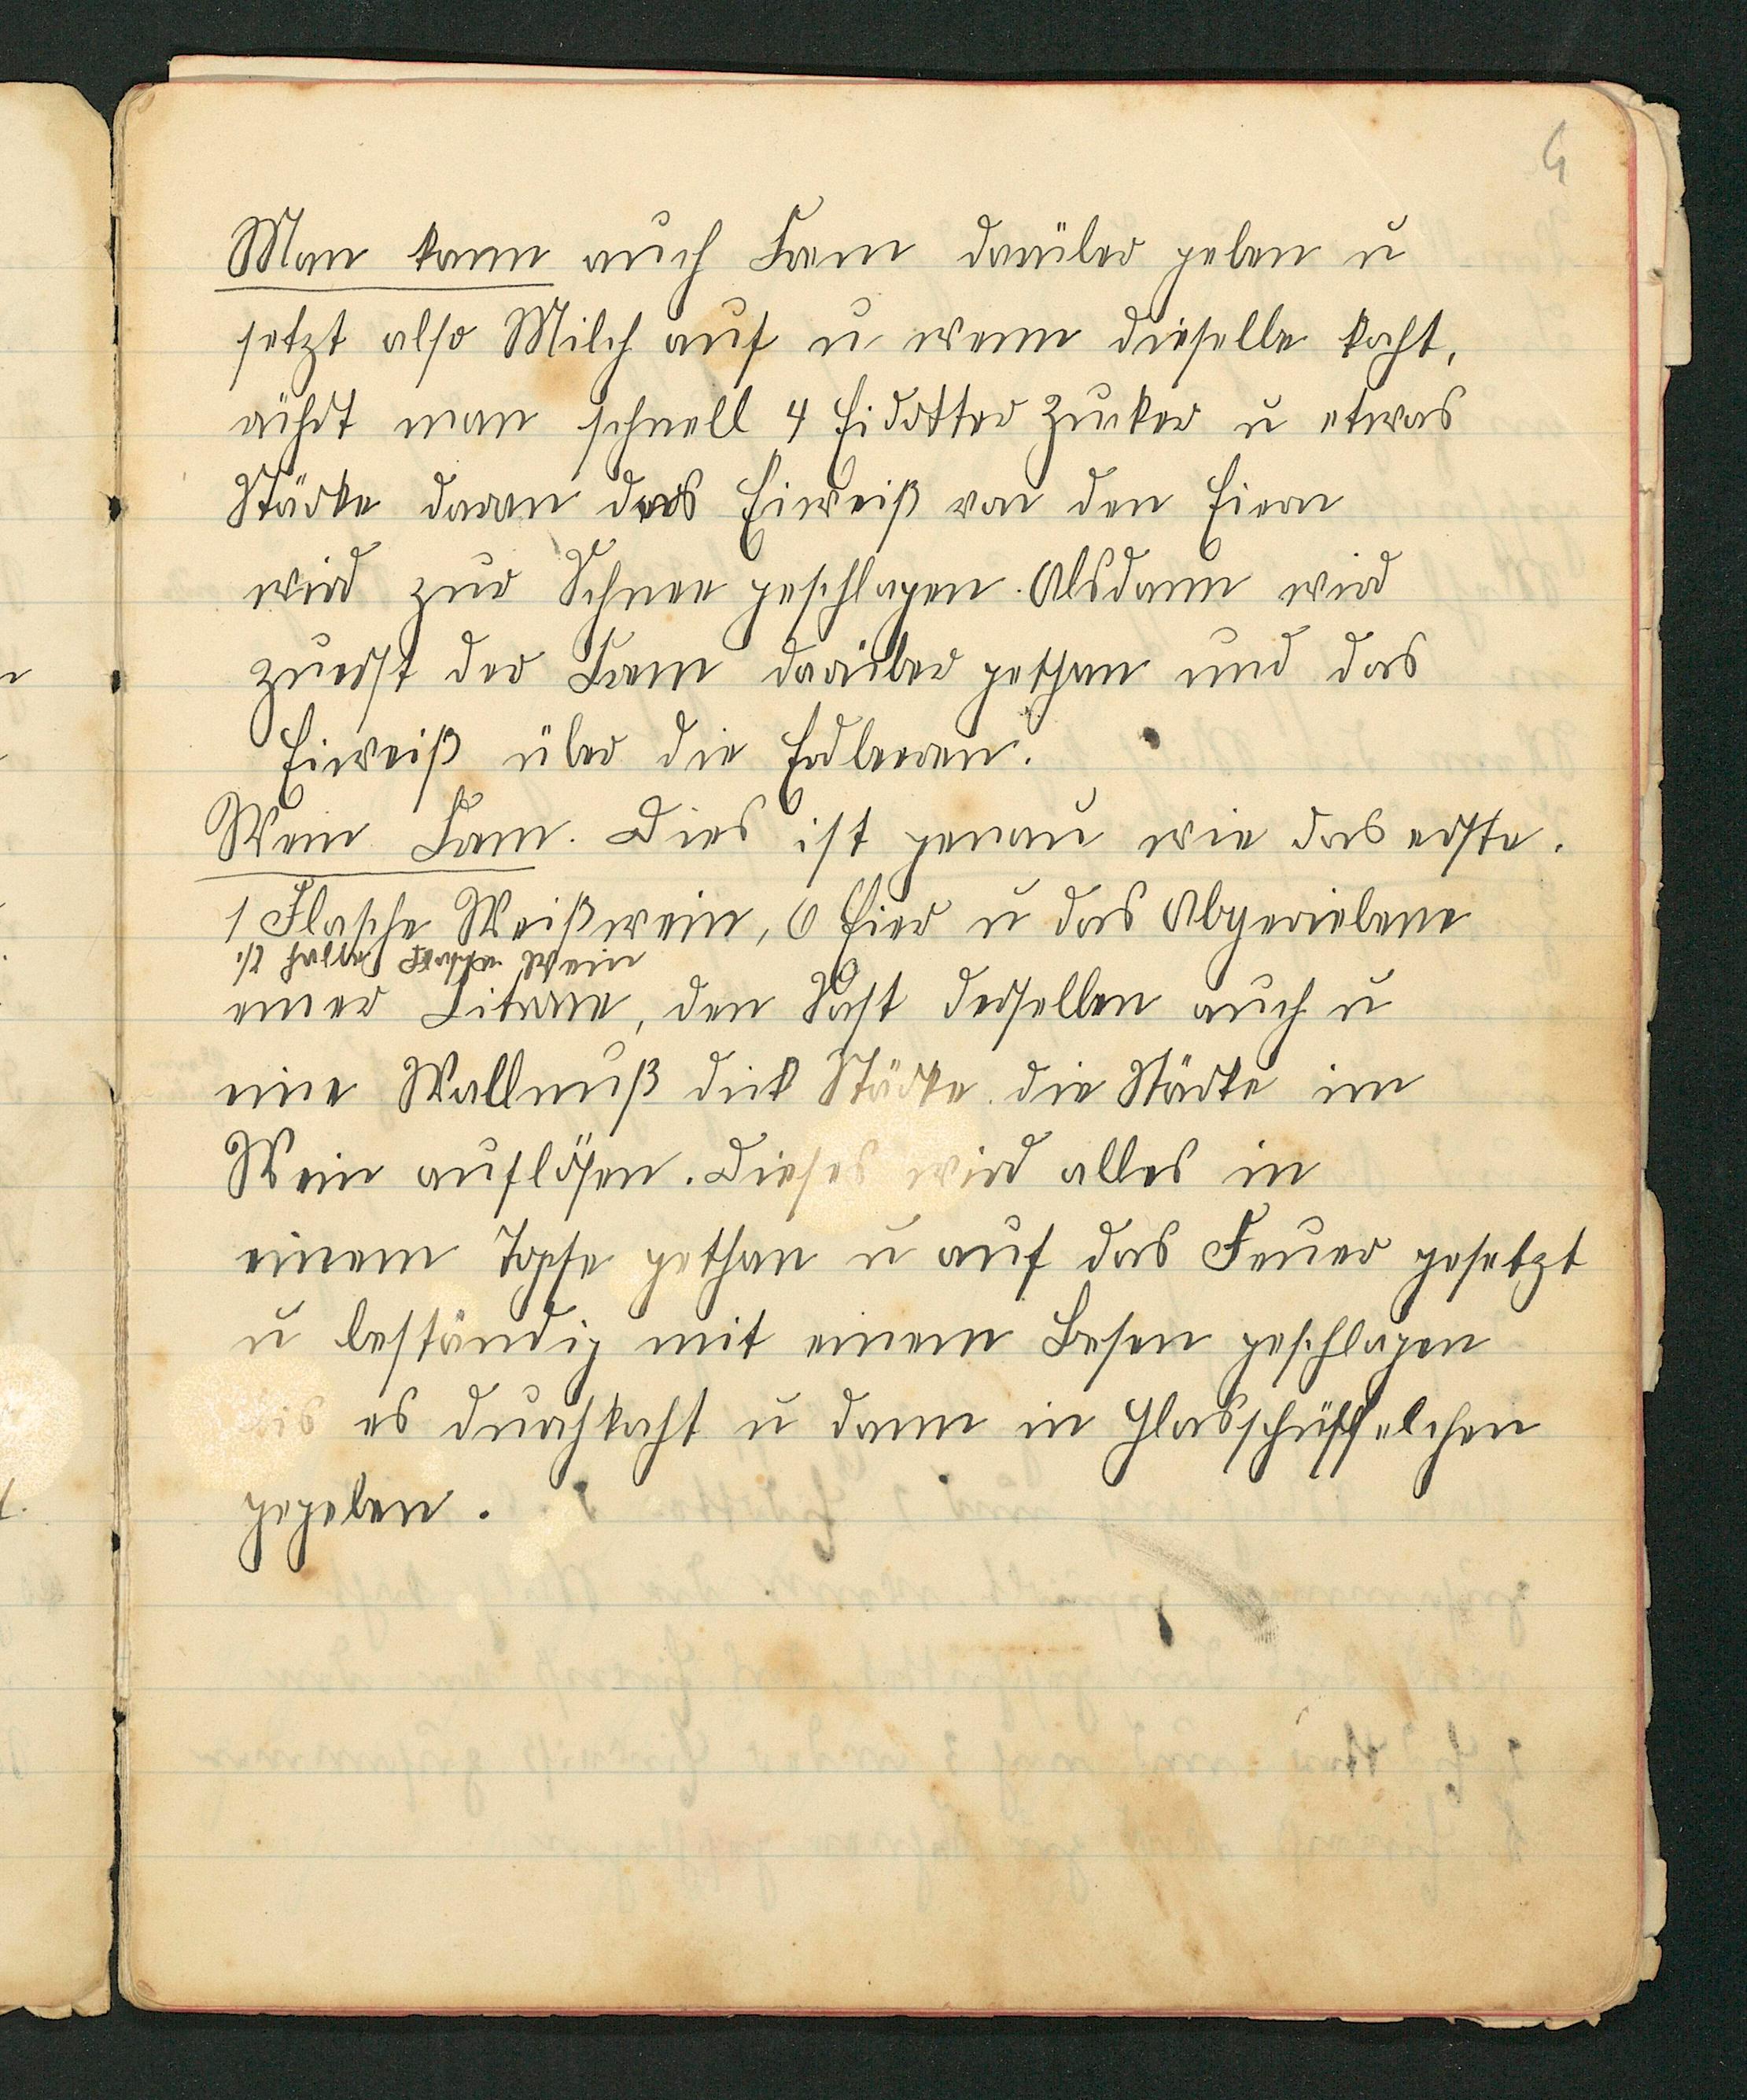 4
Man kann auch Crem darüber geben u
setzt also Milch auf u wenn dieselbe kocht,
rührt man schnell 4 Eidotter Zucker u etwas
Stärke daran das Eiweiß von den Eiern
wird zur Schnee geschlagen. Alsdann wird
zuerst der Crem darüber gethan und das
Eiweiß über die Erdbeeren.
Wein Crem. Dies ist genau wie das erste.
1 Flasche Weißwein, 6 Eier u das Abgeriebene
1/2 halbe Flasche Wein
einer Citrone, den Saft derselben auch u
eine Wallnuß dick Stärke. die Stärke im
Wein auflösen. Dieses wird alles in
einem Topfe gethan u auf das Feuer gesetzt
u beständig mit einem Besen geschlagen
bis es durchkocht u dann in Glasschüsselchen
gegeben.